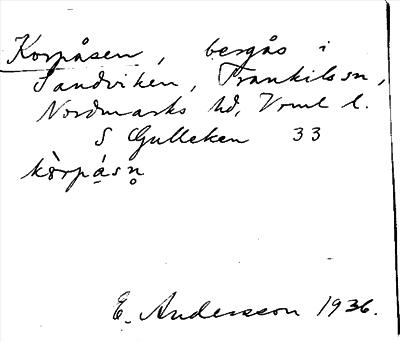 Korpåsen, bergås i
Sandviken, Trankils sn,
Nordmarks hd, Vrml l.
S Gulleken 33
kòrpásn̥
E. Andersson 1936.